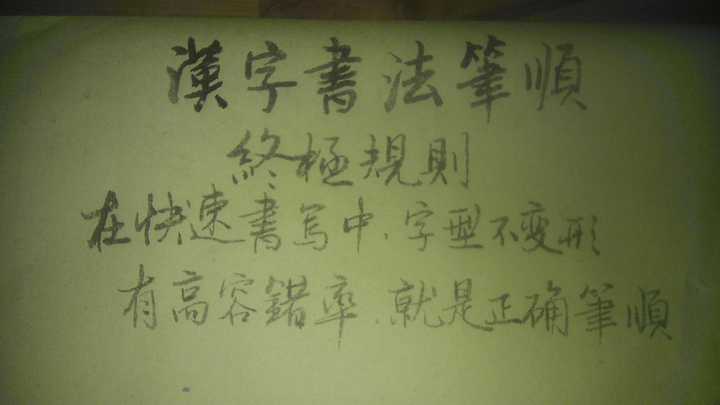 漢字書法筆順
終極規則
在快速書写中、字型不变形
有高容錯率、就是正确筆順